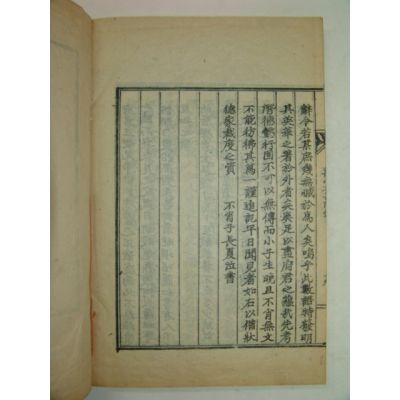 辭令若某庶幾無憾於爲人矣嗚乎此數語特發明
其英華之著於外者矣奚足以盡府君之蘊哉先考
潛德懿行固不可以無傳而小子生晚且不肖無文
不能彷彿其萬一謹追記平日聞見者如右以備狀
德家裁度之資　不肖子長夏泣書